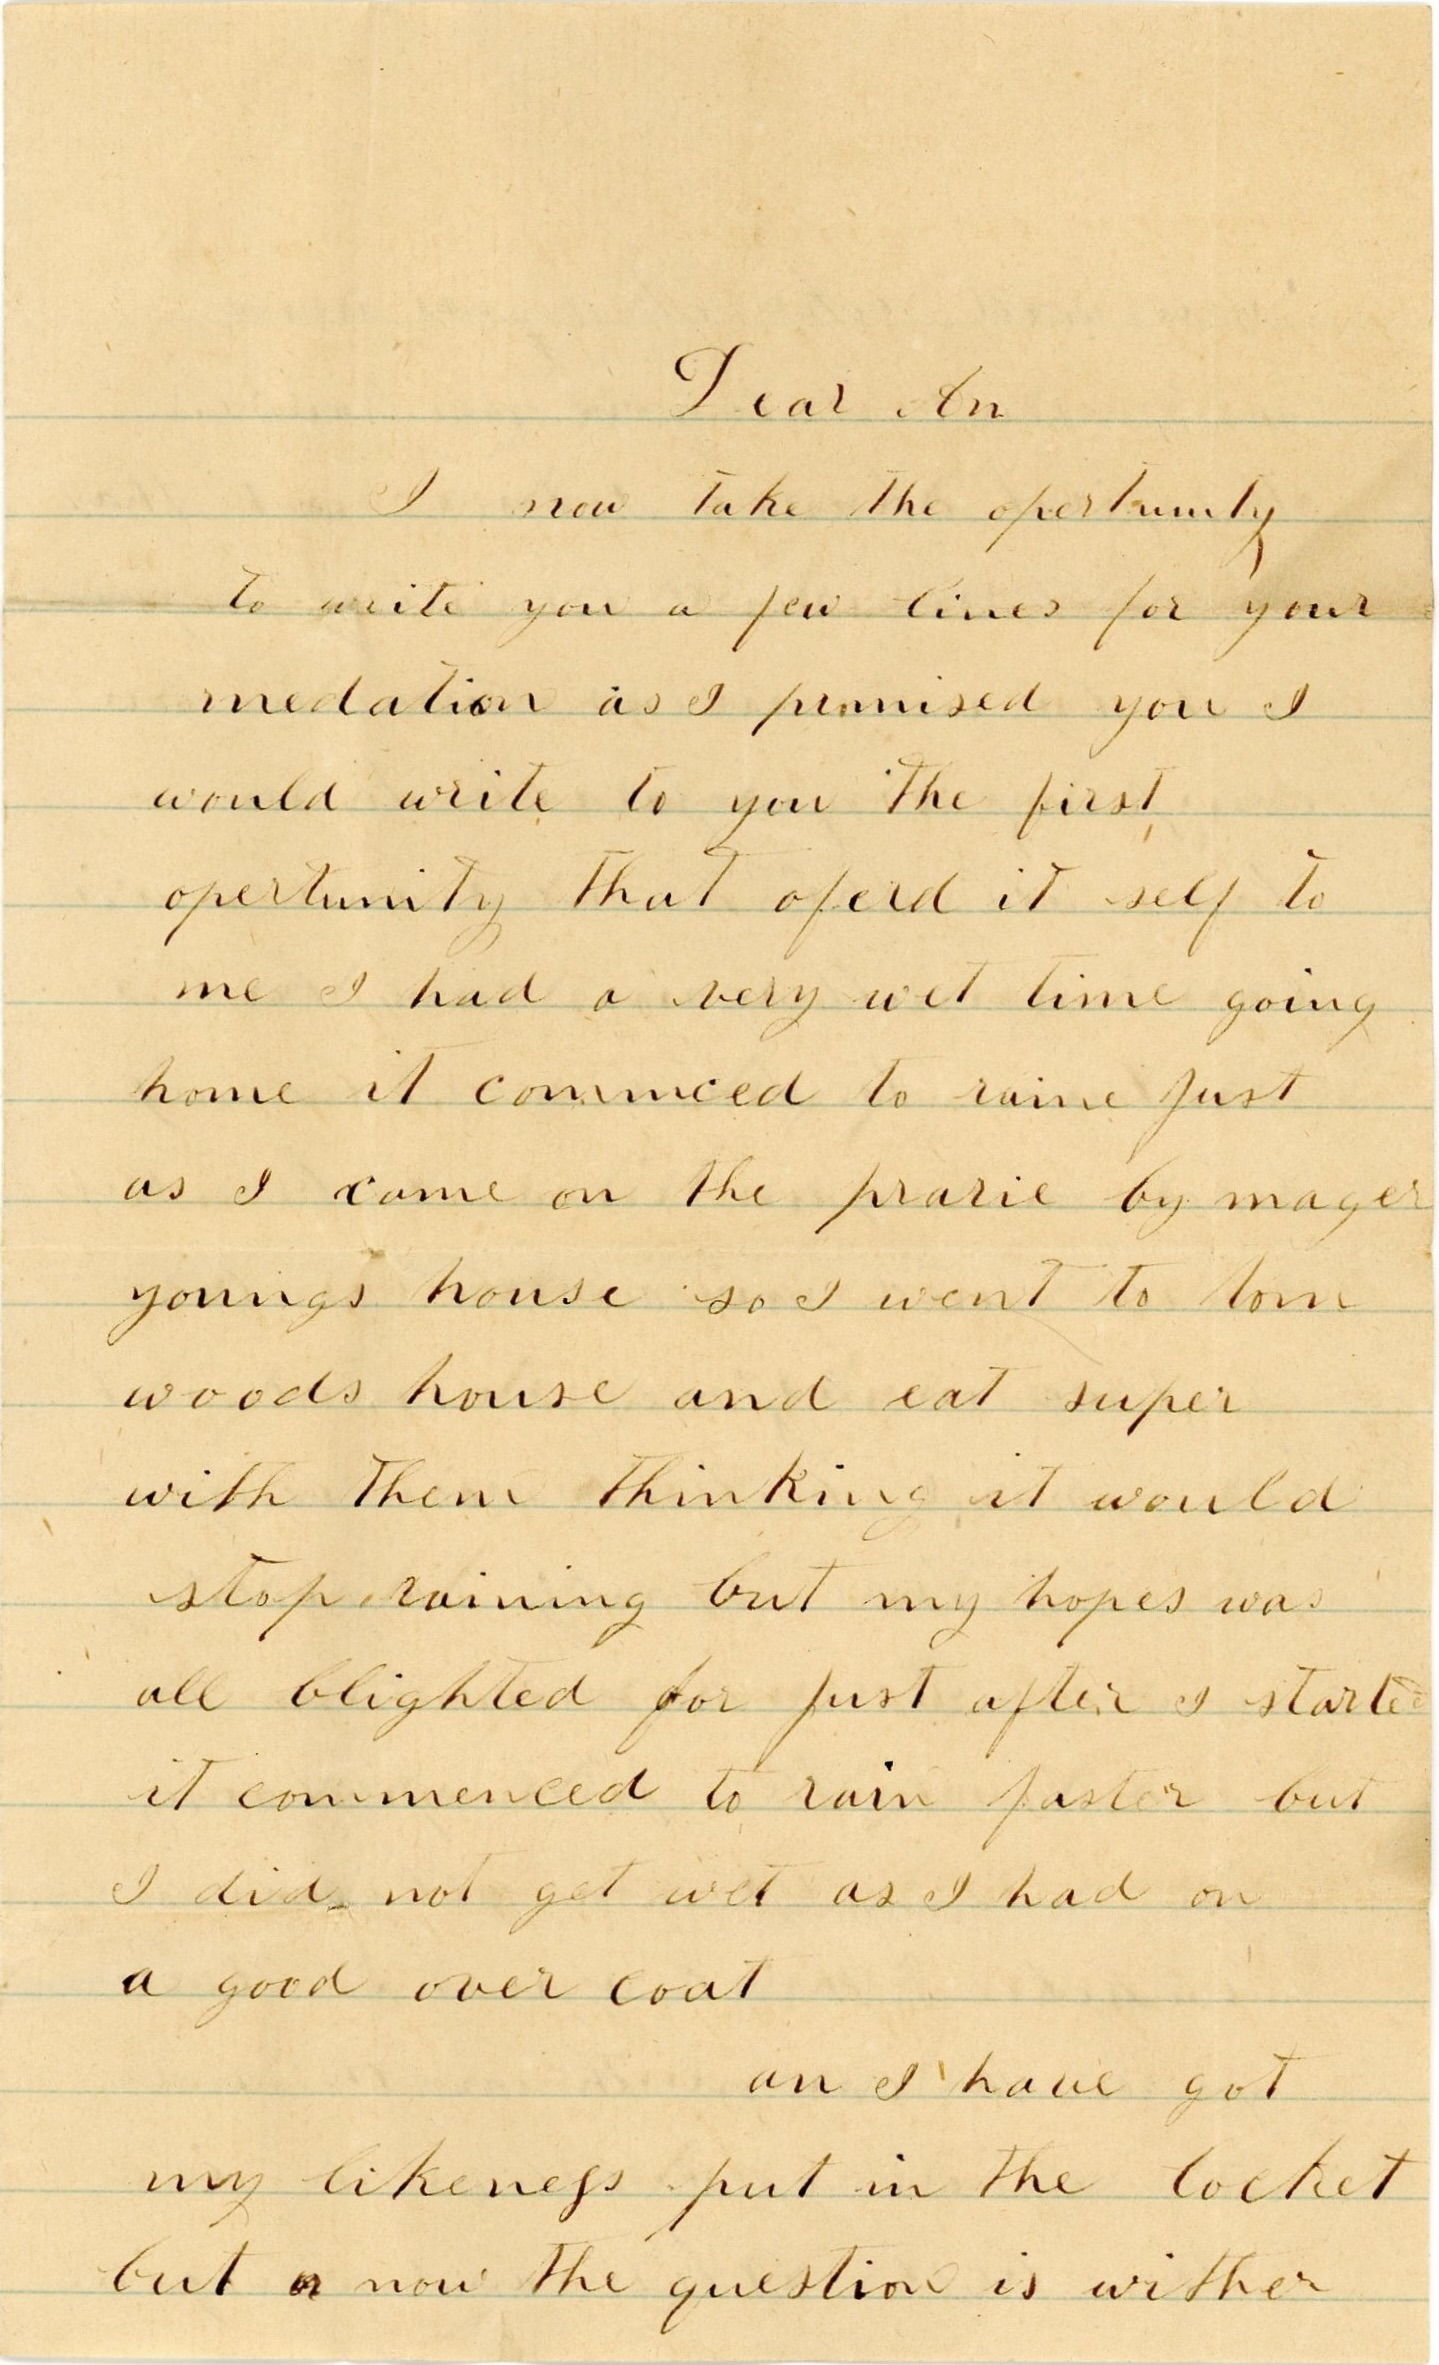 Dear An
I now take the opertunity
to write you a few lines for your
medation as I promised you I
would write to you the first
opertunity that oferd it self to
me I had a very wet time going
home it commnced to raine just
as I came on the prarie by mager
youngs house so I went to tom
woods house and eat super
with them thinking it would
stop raining but my hopes was
all blighted for just after I started
it commenced to rain faster but
I did not get wet as I had on
a good over coat
an I have got
my likeness put in the locket
but now the question is wither